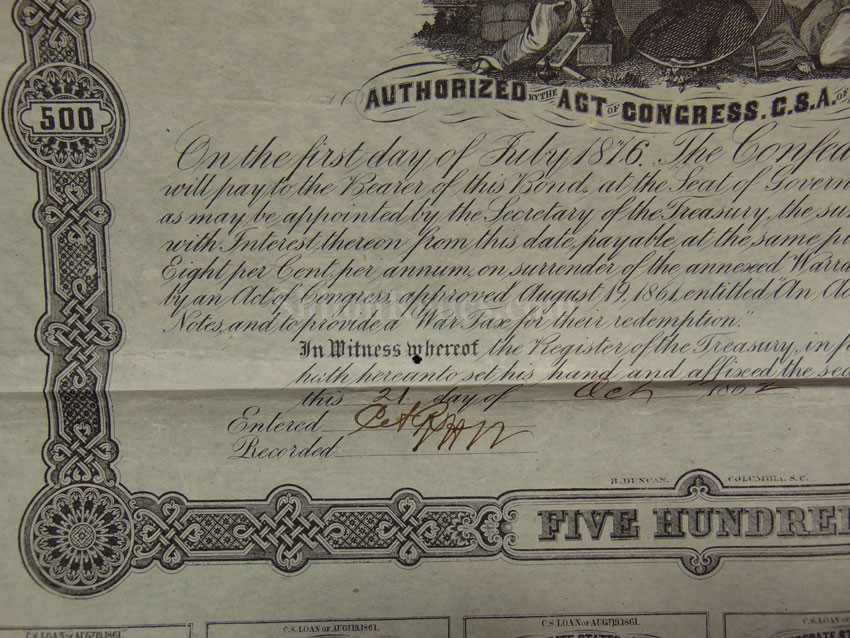 AUTHORIZED BY THE ACT OF CONGRESS. C.S.A. OF
500
On the first day of July 1876. The Confed
will pay to the Bearer of this Bond, at the Seat of Govern
as may be appointed by the Secretary of the Treasury, the su
with Interest thereon from this date, payable at the same p
Eight per Cent. per annum, on surrender of the annexed Warra
by an Act of Congress, approved August 19, 1861, entitled "An Ac
Notes, and to provide a War Tax for their redemption."
In Witness whereof the Register of the Treasury, in p
hath hereunto set his hand and affixed the sea
this 21 day of Oct 1862
Entered
Recorded
B. DUNCAN. COLUMBIA, S.C.
FIVE HUNDRE
C.S. LOAN OF AUG. 19, 1861.
C.S. LOAN OF AUG. 19, 1861.
C.S. LOAN OF AUG. 19, 1861.